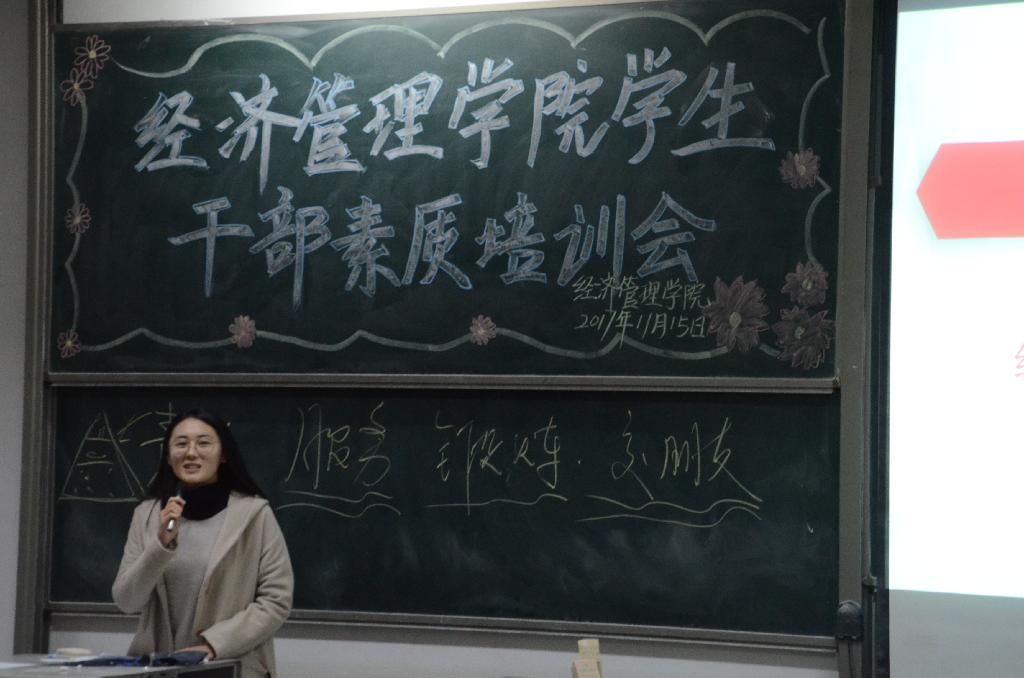 经济管理学院学生
干部素质培训会
经济管理学院
2017年11月15日
服务 锻炼 交朋友